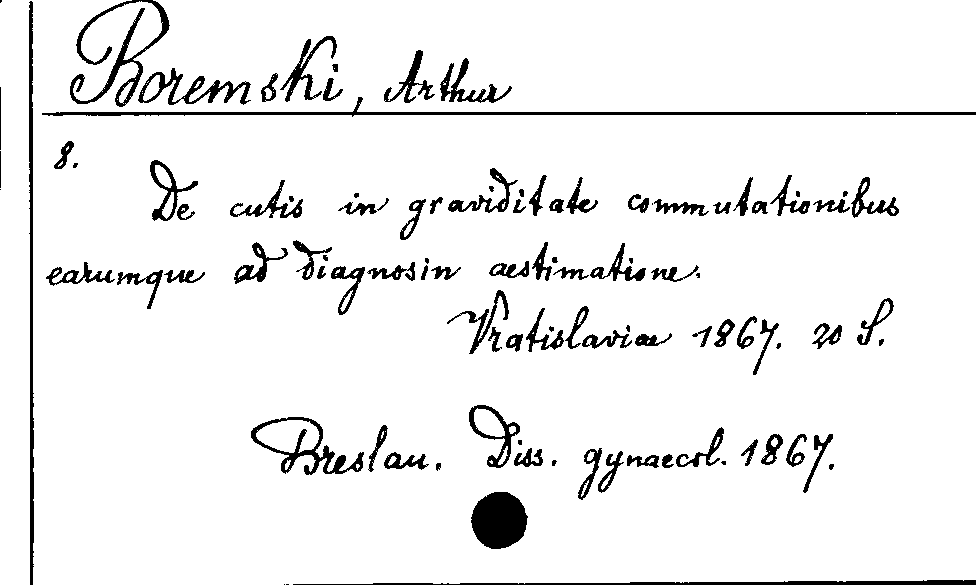 Boremski, Arthur
8.
De cutis in graviditate commutationibus
earumque ad diagnosin aestimatione.
Vratislaviae 1867. 20 S.
Breslau. Diss. gynaecol. 1867.